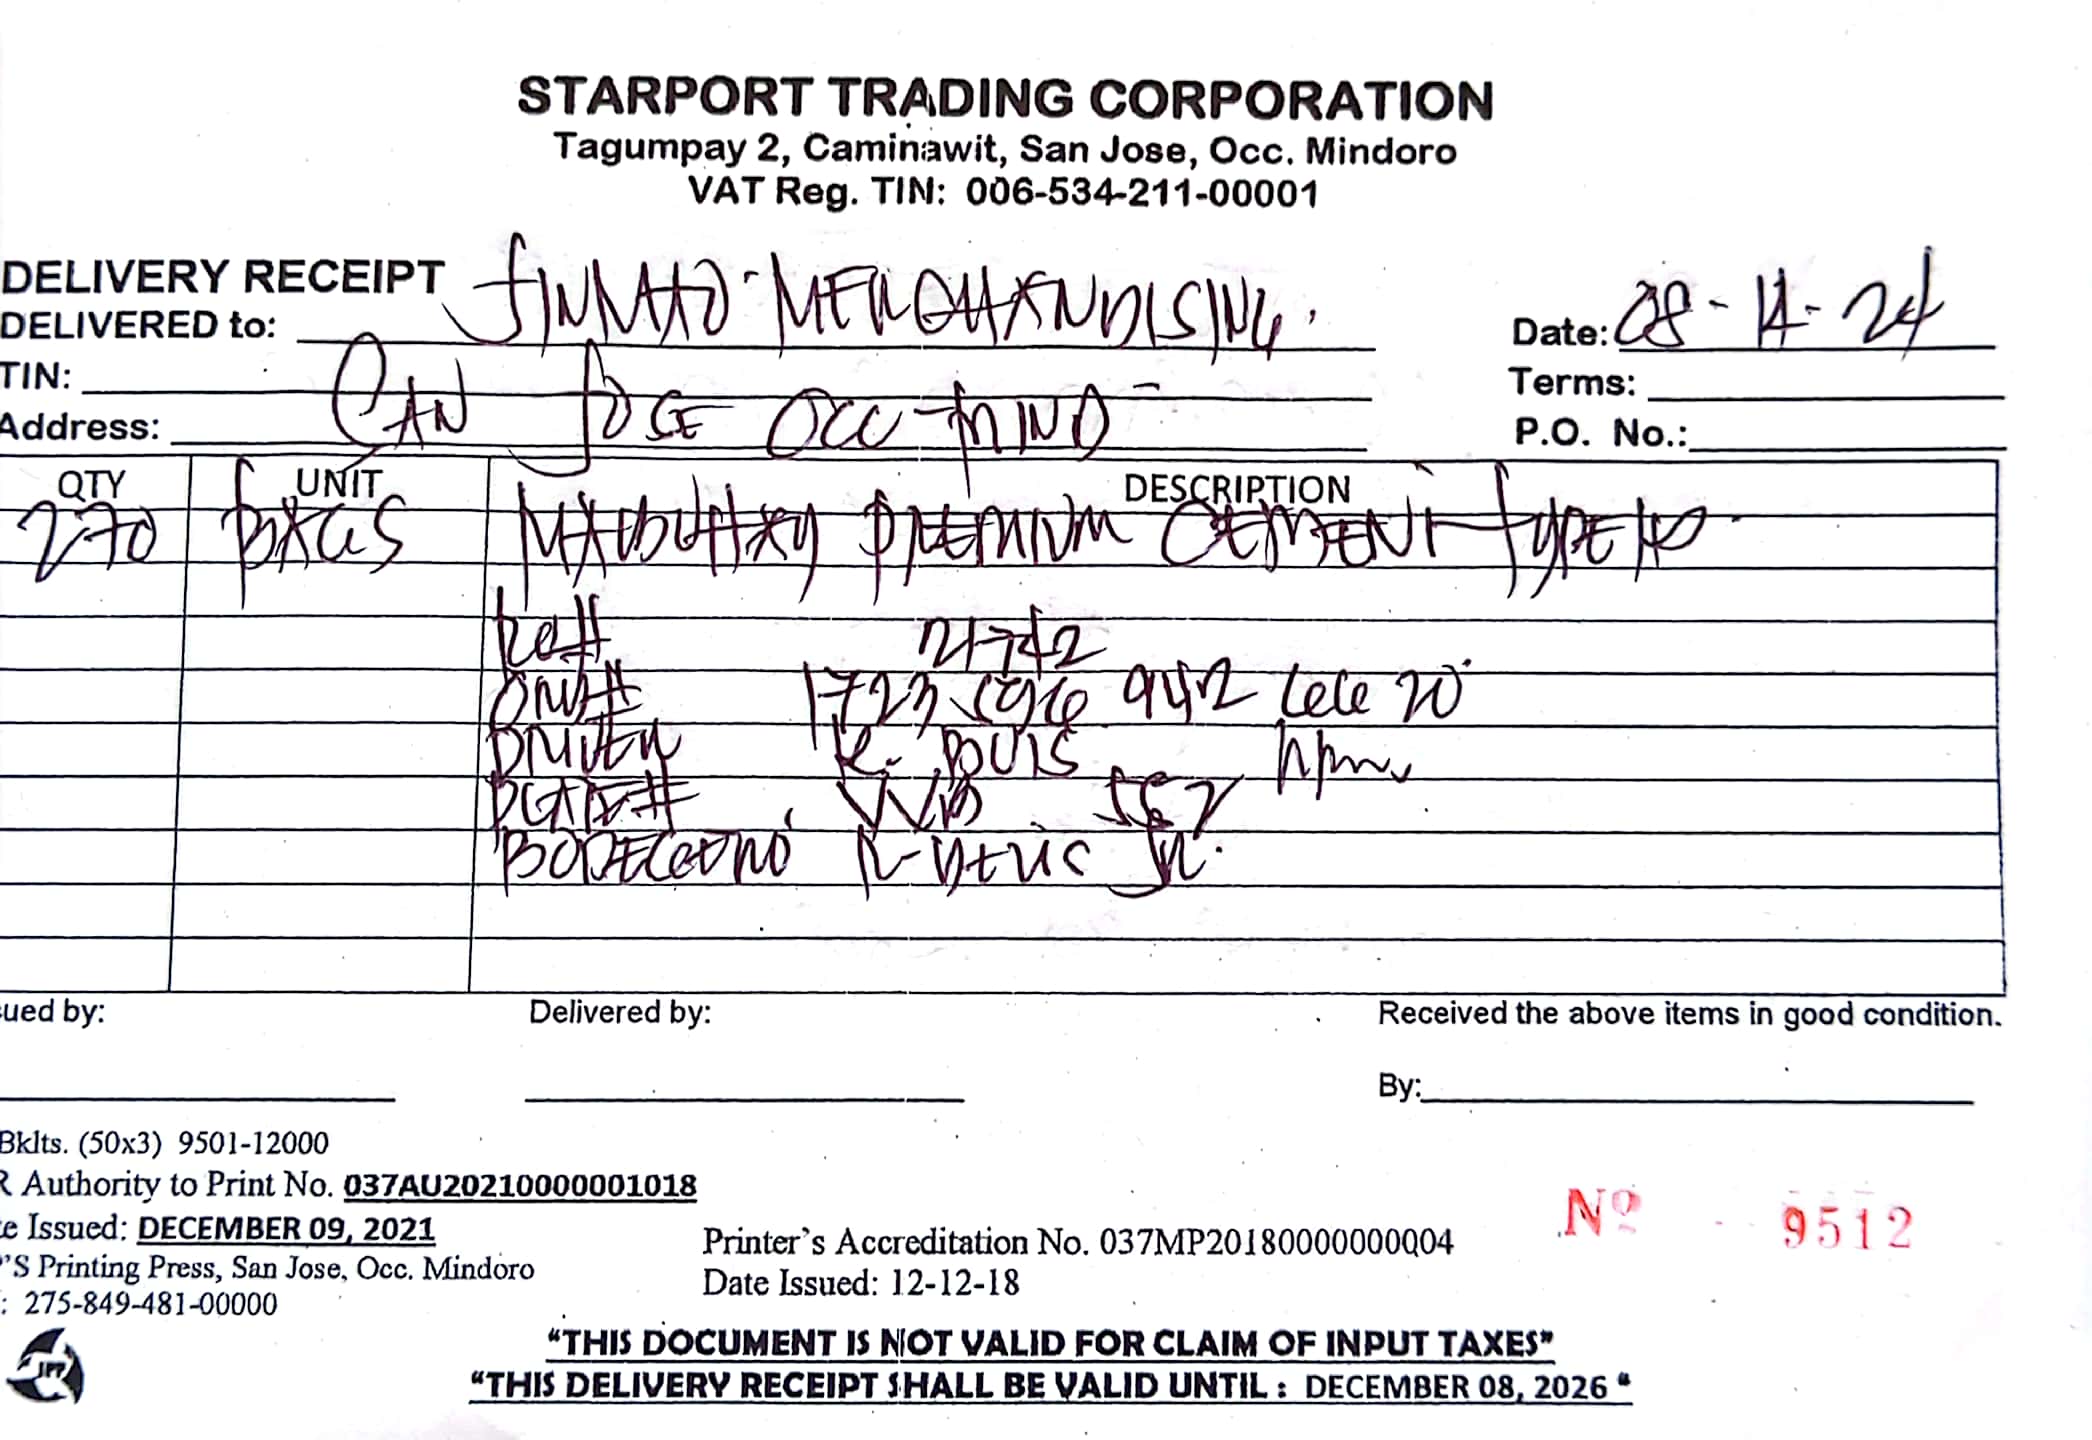 STARPORT TRADING CORPORATION
Tagumpay 2, Caminawit, San Jose, Occ. Mindoro
VAT Reg. TIN: 006-534-211-00001
DELIVERY RECEIPT
DELIVERED to: JINMAO MERCHANDISING.
Date: 08-14-24
TIN:
Terms:
Address: SAN JOSE OCC MINO
P.O. No.:
QTY UNIT DESCRIPTION
270 BAGS PREMIUM CEMENT TYPE
21742
1723 942 20
DRIVER
PLATE#
Jr.
ued by: Delivered by: Received the above items in good condition.
By:
Bklts. (50x3) 9501-12000
R Authority to Print No. 037AU20210000001018
e Issued: DECEMBER 09, 2021
'S Printing Press, San Jose, Occ. Mindoro
: 275-849-481-00000
Printer's Accreditation No. 037MP20180000000004
Date Issued: 12-12-18
Nº 9512
JPP
"THIS DOCUMENT IS NOT VALID FOR CLAIM OF INPUT TAXES"
"THIS DELIVERY RECEIPT SHALL BE VALID UNTIL : DECEMBER 08, 2026 "